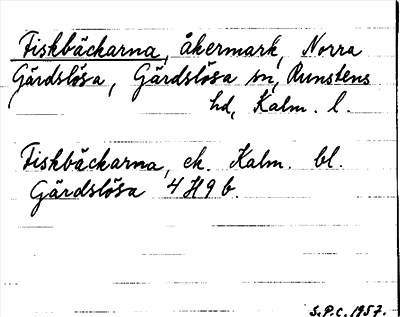 Fiskbäckarna, åkermark, Norra
Gärdslösa, Gärdslösa sn, Runstens
hd, Kalm. l.
Fiskbäckarna, ek. Kalm. bl.
Gärdslösa 4H9b.
S.P.C. 1957.